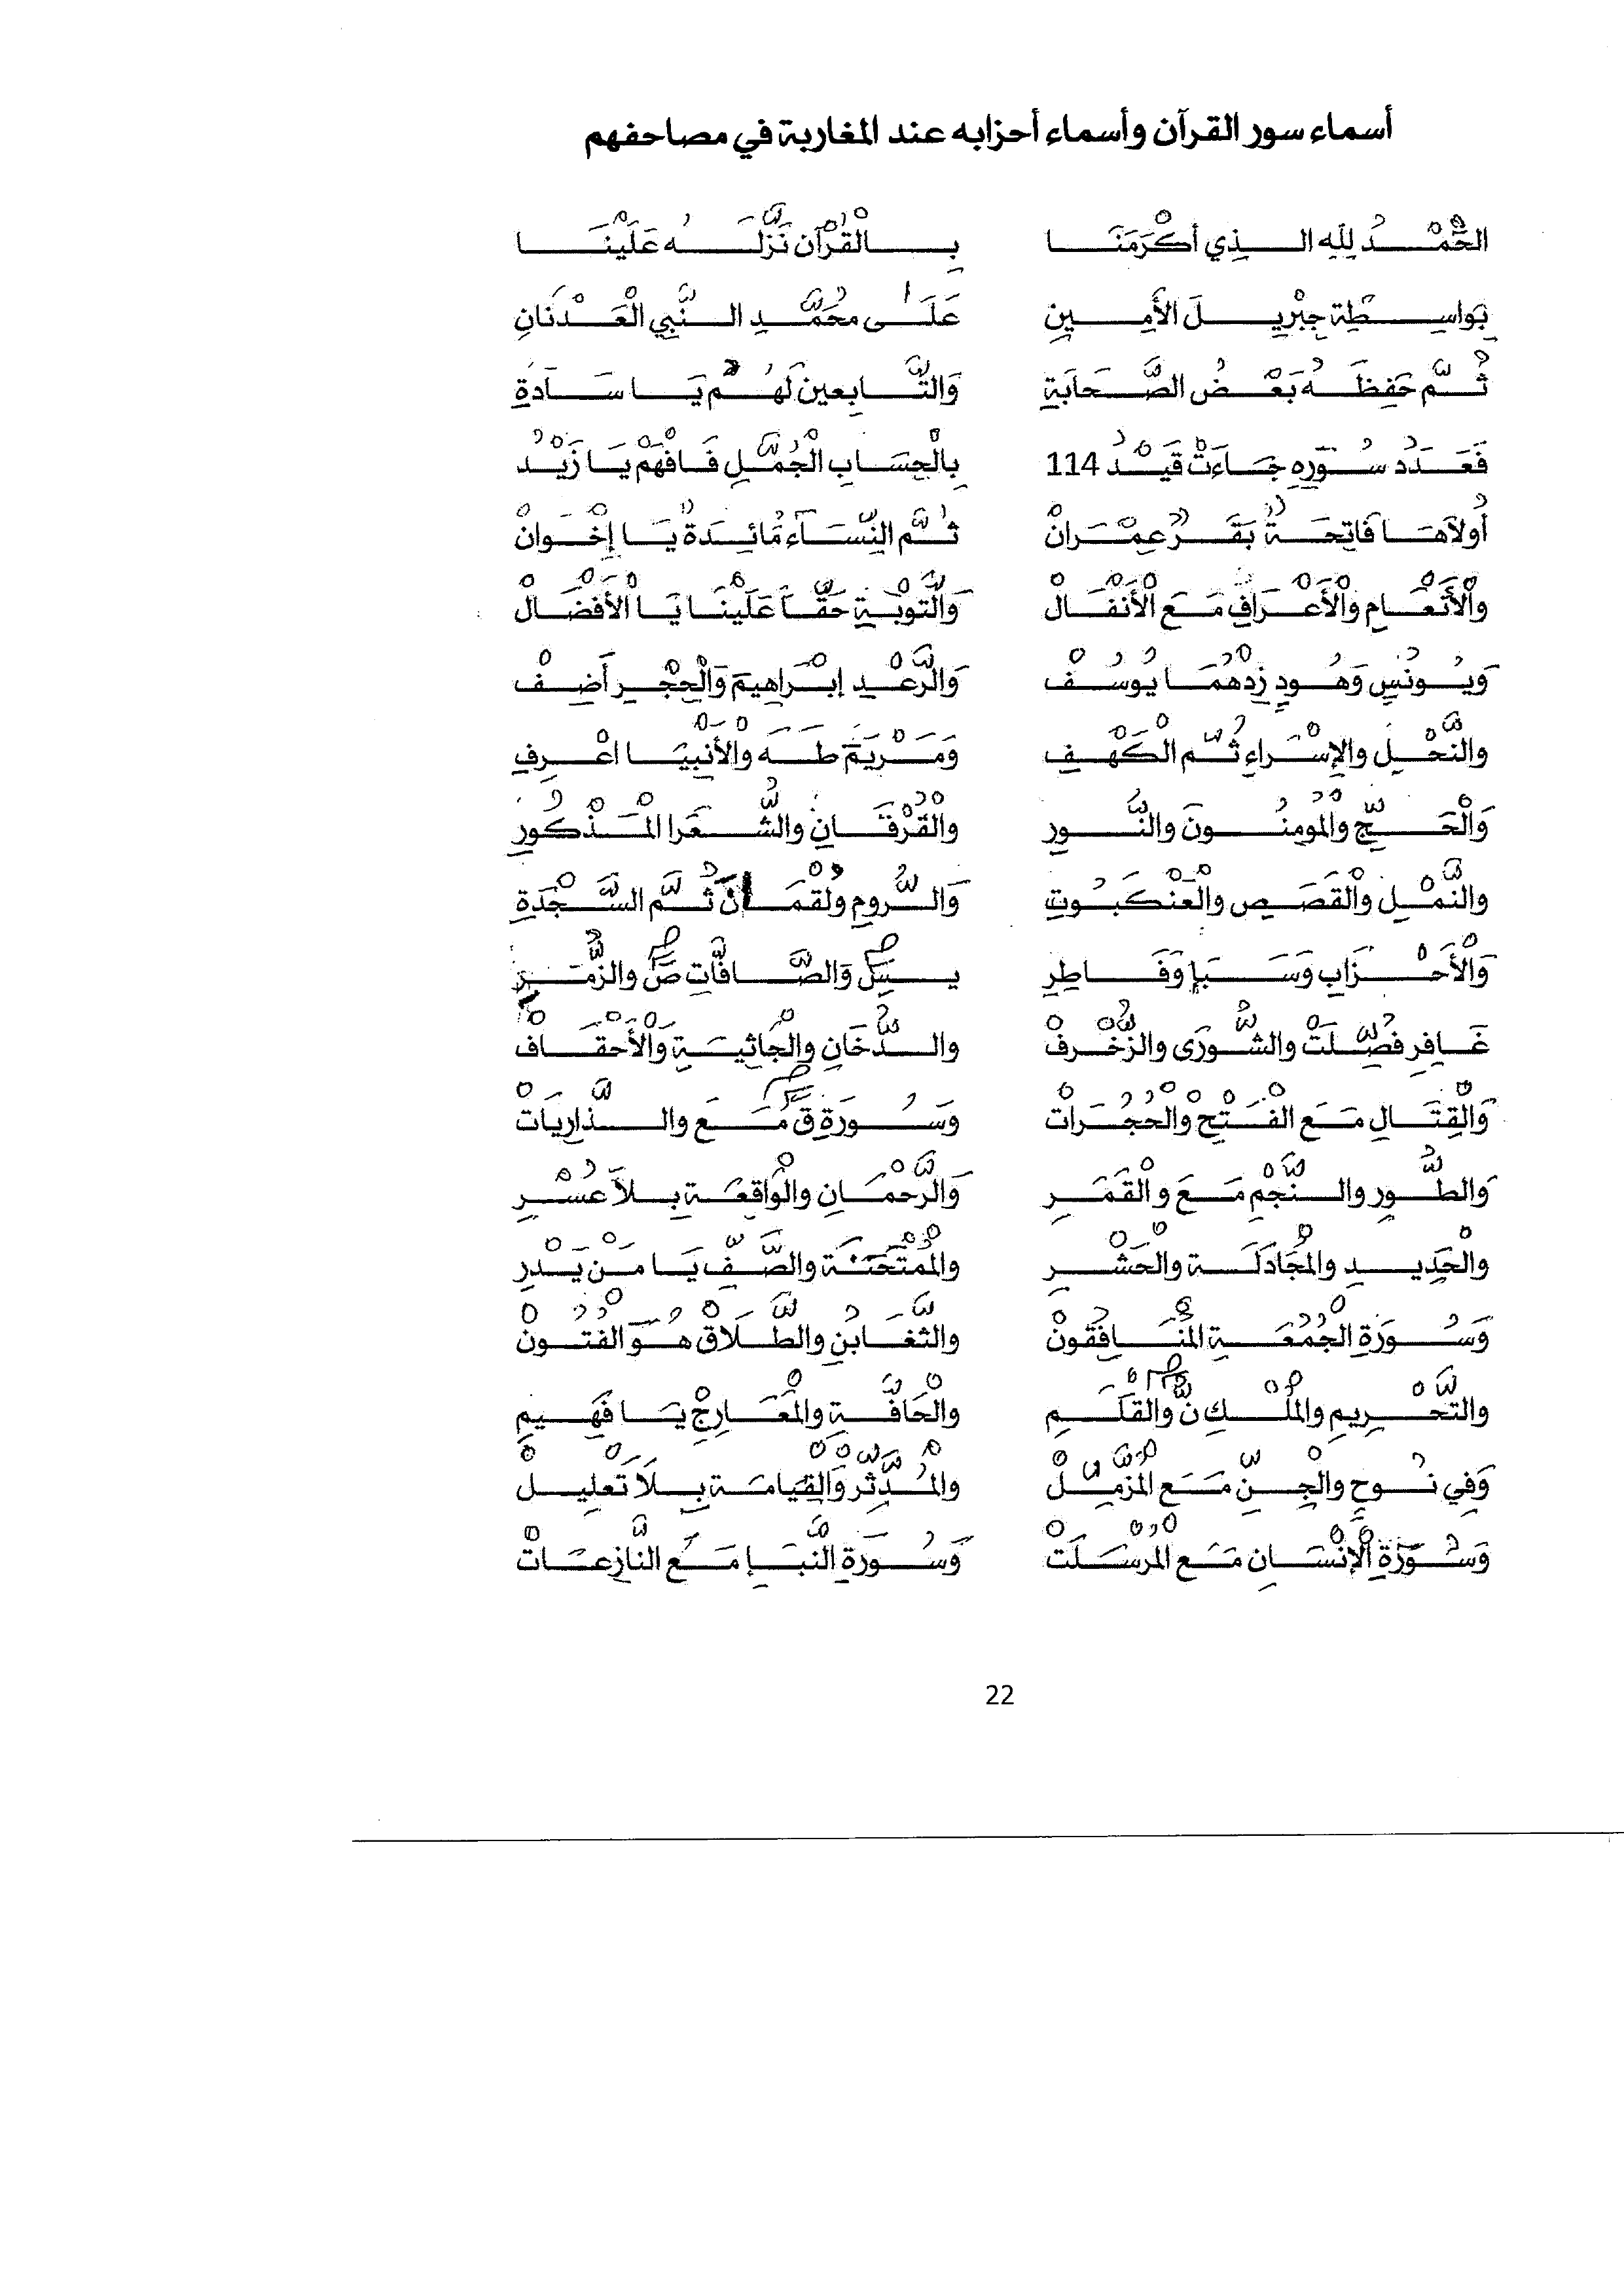 أسماء سور القرآن وأسماء أحزابه عند المغاربة في مصاحفهم
الحَمْدُ لِلَّهِ الذِي أَكْرَمَنَا بِالْقُرْآنِ نَزَّلَهُ عَلَيْنَا
بِوَاسِطَةِ جِبْرِيلَ الأَمِينِ عَلَى مُحَمَّدِ النَّبِي الْعَدْنَانِ
ثُمَّ حَفِظَهُ بَعْضُ الصَّحَابَةِ وَالتَّابِعِينَ لَهُمْ يَا سَادَةِ
فَعَدَدُ سُوَرِهِ جَاءَتْ قَيْدُ 114 بِالْحِسَابِ الْجُمَّلِ فَافْهَمْ يَا زَيْدُ
أُولاَهَا فَاتِحَةُ بَقَرُ عِمْرَانْ ثُمَّ النِّسَاءُ مَائِدَةُ يَا إِخْوَانْ
وَالْأَنْعَامِ وَالْأَعْرَافِ مَعَ الْأَنْفَالْ وَالتَّوْبَةِ حَقًّا عَلَيْنَا يَا الْأَفْضَالْ
وَيُونُسِ وَهُودِ زِدْهُمَا يُوسُفْ وَالرَّعْدِ إِبْرَاهِيمَ وَالْحِجْرِ أَضِفْ
وَالنَّحْلِ وَالإِسْرَاءِ ثُمَّ الْكَهْفِ وَمَرْيَمَ طَهَ وَالْأَنْبِيَا اعْرِفِ
وَالْحَجِّ وَالْمُومِنُونَ وَالنُّورِ وَالْفُرْقَانِ وَالشُّعَرَا الْمَذْكُورِ
وَالنَّمْلِ وَالْقَصَصِ وَالْعَنْكَبُوتِ وَالرُّومِ وَلُقْمَانَ ثُمَّ السَّجْدَةِ
وَالْأَحْزَابِ وَسَبَإِ وَفَاطِرِ يس وَالصَّافَّاتِ صَ وَالزُّمَرِ
غَافِرِ فُصِّلَتْ وَالشُّورَى وَالزُّخْرُفْ وَالدُّخَانِ وَالْجَاثِيَةِ وَالْأَحْقَافْ
وَالْقِتَالِ مَعَ الْفَتْحِ وَالْحُجُرَاتْ وَسُورَةِ ق مَعَ وَالذَّارِيَاتْ
وَالطُّورِ وَالنَّجْمِ مَعَ وَالْقَمَرِ وَالرَّحْمَانِ وَالْوَاقِعَةِ بِلاَ عُسْرِ
وَالْحَدِيدِ وَالْمُجَادَلَةِ وَالْحَشْرِ وَالْمُمْتَحَنَةِ وَالصَّفِّ يَا مَنْ يَدْرِ
وَسُورَةِ الْجُمُعَةِ الْمُنَافِقُونْ وَالتَّغَابُنِ وَالطَّلَاقْ هُوَ الْفُتُونْ
وَالتَّحْرِيمِ وَالْمُلْكِ نْ وَالْقَلَمِ وَالْحَاقَّةِ وَالْمَعَارِجْ يَا فَهِيمِ
وَفِي نُوحِ وَالْجِنِّ مَعَ الْمُزَّمِّلْ وَالْمُدَّثِّرْ وَالْقِيَامَةِ بِلاَ تَعْلِيلْ
وَسُورَةِ الْإِنْسَانِ مَعَ الْمُرْسَلَتْ وَسُورَةِ النَّبَإِ مَعَ النَّازِعَاتْ
22